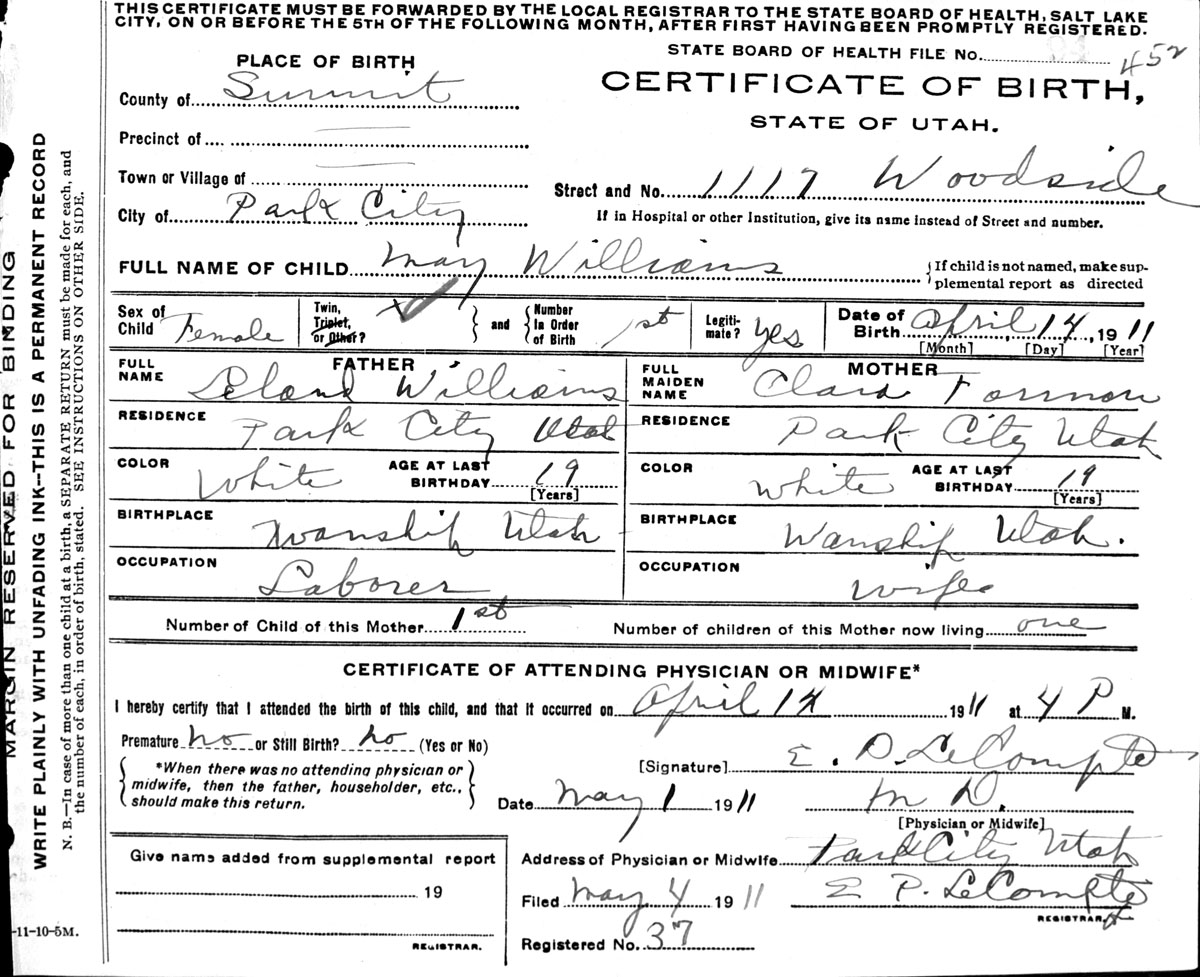 THIS CERTIFICATE MUST BE FORWARDED BY THE LOCAL REGISTRAR TO THE STATE BOARD OF HEALTH, SALT LAKE
CITY, ON OR BEFORE THE 5TH OF THE FOLLOWING MONTH, AFTER FIRST HAVING BEEN PROMPTLY REGISTERED.
STATE BOARD OF HEALTH FILE No. 452
PLACE OF BIRTH
CERTIFICATE OF BIRTH,
STATE OF UTAH.
County of Summit
Precinct of
Town or Village of
Street and No. 1117 Woodside
City of Park City
If in Hospital or other Institution, give its name instead of Street and number.
FULL NAME OF CHILD May Williams
If child is not named, make sup-
plemental report as directed
Sex of Child Female
Twin, Triplet, or Other?
and
Number In Order of Birth 1st
Legiti-mate? Yes
Date of Birth April 14, 1911
[Month] [Day] [Year]
FATHER
FULL NAME Leland Williams
MOTHER
FULL MAIDEN NAME Clara
RESIDENCE Park City Utah
RESIDENCE Park City Utah
COLOR White AGE AT LAST BIRTHDAY 19 [Years]
COLOR White AGE AT LAST BIRTHDAY 19 [Years]
BIRTHPLACE Wanship Utah
BIRTHPLACE Wanship Utah.
OCCUPATION Laborer
OCCUPATION Wife
Number of Child of this Mother 1st
Number of children of this Mother now living one
CERTIFICATE OF ATTENDING PHYSICIAN OR MIDWIFE*
I hereby certify that I attended the birth of this child, and that it occurred on April 14 1911 at 4 P M.
Premature No or Still Birth? No (Yes or No)
*When there was no attending physician or
midwife, then the father, householder, etc.,
should make this return.
[Signature] E. P. LeCompte
Date May 1 1911 M D.
[Physician or Midwife]
Give name added from supplemental report
19
REGISTRAR.
Address of Physician or Midwife Park City Utah
Filed May 4 1911 E P. LeCompte
REGISTRAR.
Registered No. 37
-11-10-5M.
MARGIN RESERVED FOR BINDING
WRITE PLAINLY WITH UNFADING INK--THIS IS A PERMANENT RECORD
N. B.--In case of more than one child at a birth, a SEPARATE RETURN must be made for each, and
the number of each, in order of birth, stated. SEE INSTRUCTIONS ON OTHER SIDE.